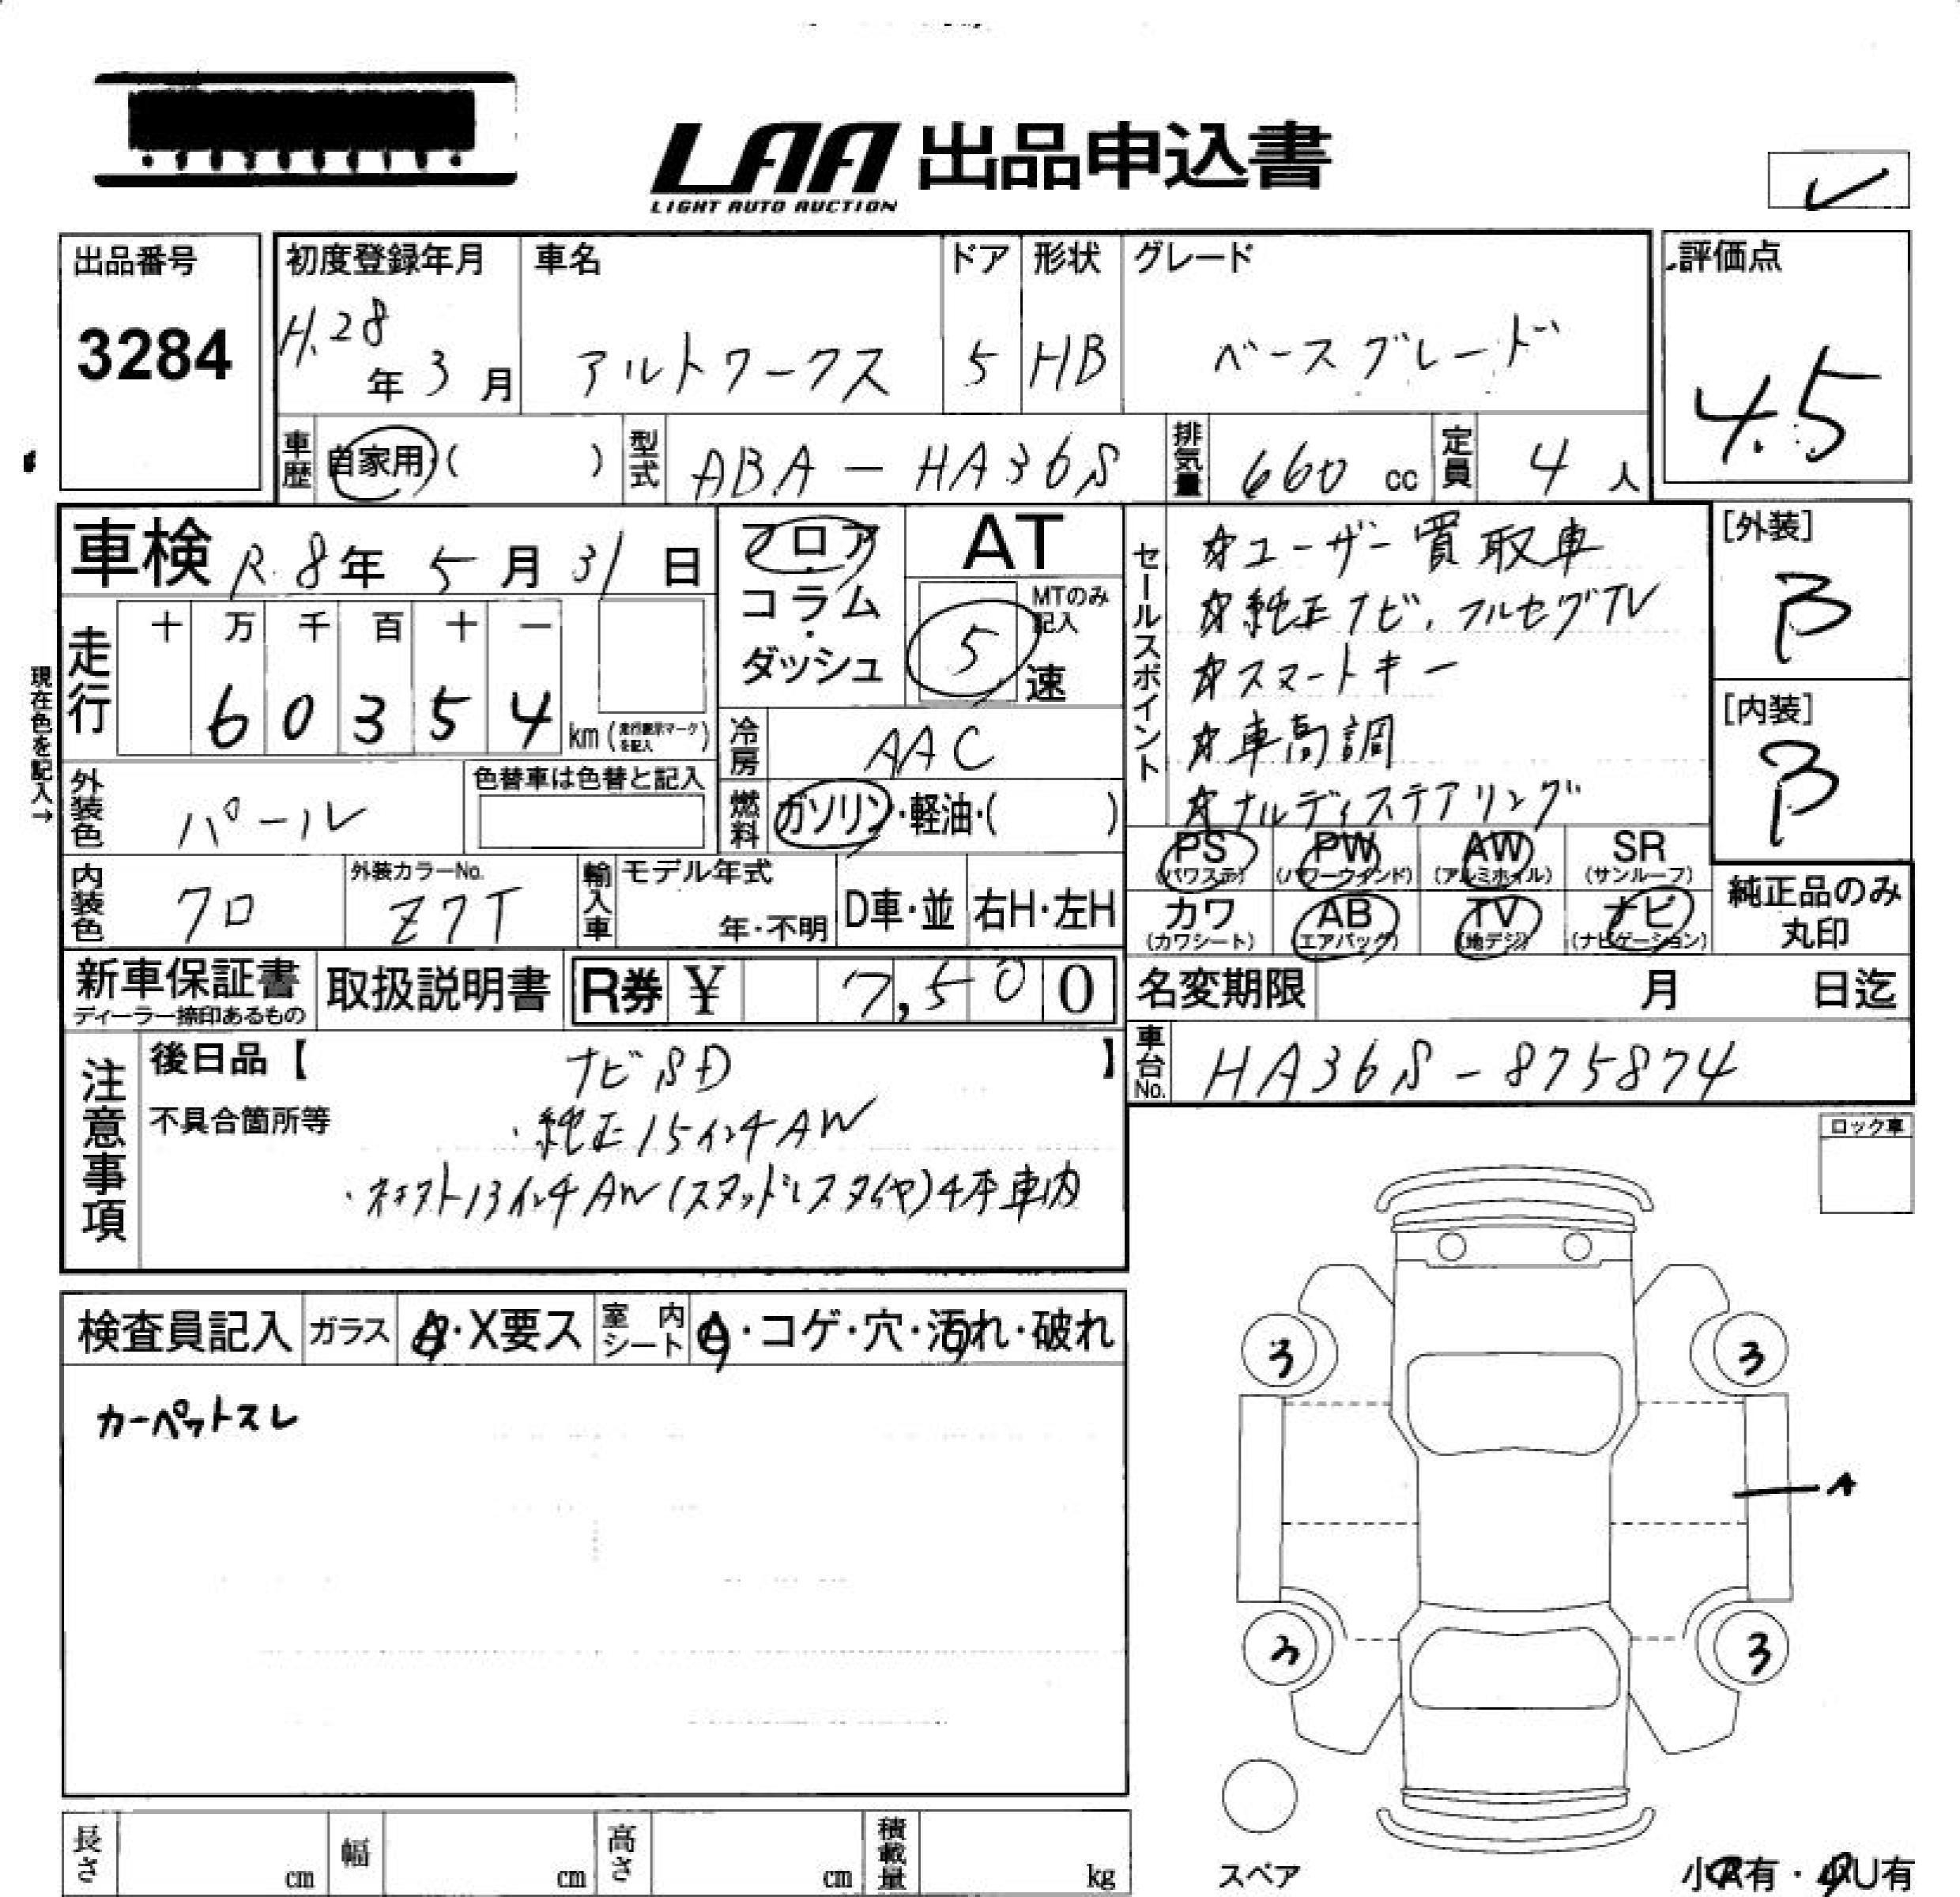 LAA 出品申込書
LIGHT AUTO AUCTION
出品番号
3284
初度登録年月
H.28年3月
車名
アルトワークス
ドア
5
形状
HB
グレード
ベースグレード
評価点
4.5
車歴
自家用・( )
型式
ABA-HA36S
排気量
660 cc
定員
4人
車検 R.8年 5月 31日
フロア・コラム・ダッシュ
AT
MTのみ記入
5速
セールスポイント
☆ユーザー買取車
☆純正ナビ、フルセグTV
☆スマートキー
☆車高調
☆ナルディステアリング
[外装]
B
[内装]
B
現在色を記入→
走行
十 万 千 百 十 一
6 0 3 5 4 km
(走行表示マークを記入)
冷房
AAC
外装色
パール
色替車は色替と記入
燃料
ガソリン・軽油・( )
内装色
クロ
外装カラーNo.
Z7T
輸入車
モデル年式
年・不明
D車・並
右H・左H
PS
(パワステ)
PW
(パワーウインド)
AW
(アルミホイル)
SR
(サンルーフ)
カワ
(カワシート)
AB
(エアバッグ)
TV
(地デジ)
ナビ
(ナビゲーション)
純正品のみ
丸印
新車保証書
ディーラー捺印あるもの
取扱説明書
R券 ¥ 7,500
名変期限 月 日迄
車台No.
HA36S-875874
注意事項
後日品【 ナビSD 】
不具合箇所等
・純正15インチAW
・ネオスト13インチAW(スタッドレスタイヤ)4本車内
ロック車
検査員記入
ガラス
A・X要ス
室内シート
A・コゲ・穴・汚れ・破れ
カーペットスレ
3
3
A
3
3
スペア
長さ cm
幅 cm
高さ cm
積載量 kg
小A有・小U有